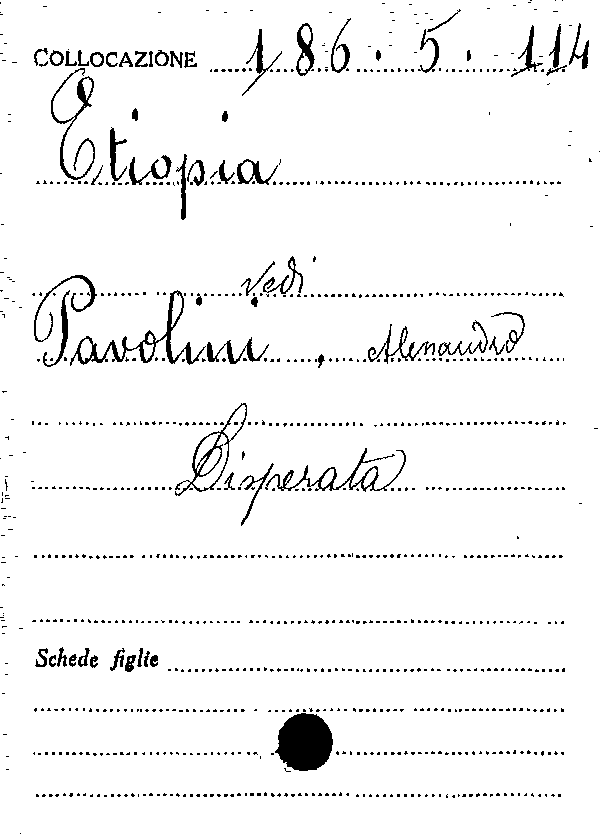 COLLOCAZIONE 186.5.114
Etiopia
Vedi
Pavolini, Alessandro
Disperata
Schede figlie